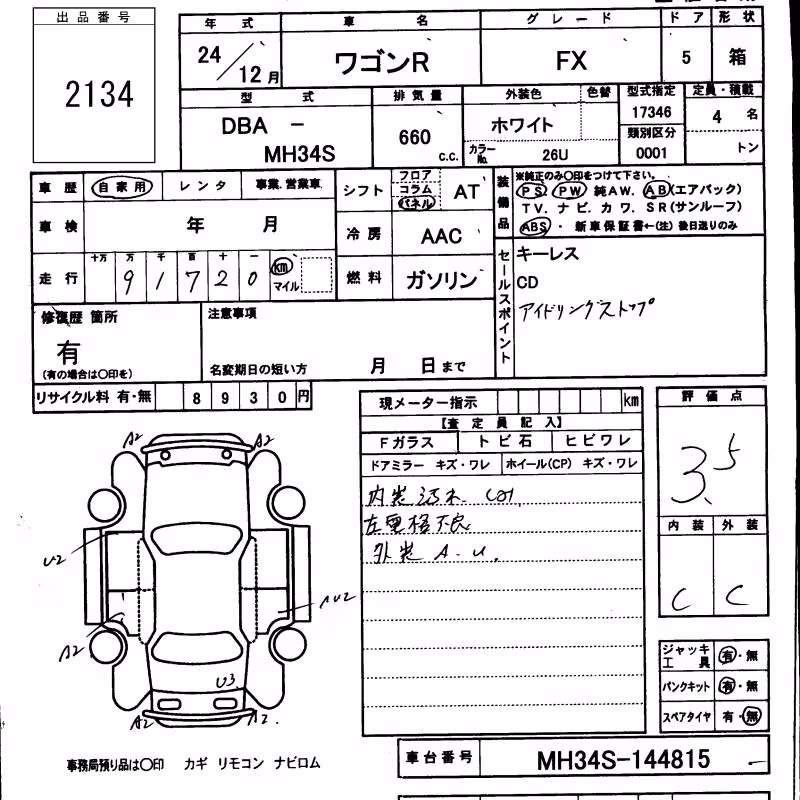 出品番号
2134
年式 車名 グレード ドア 形状
24/12月 ワゴンR FX 5 箱
型式 排気量 外装色 色替 型式指定 定員・積載
DBA － MH34S 660 c.c. ホワイト 17346 4 名
カラーNo. 26U 類別区分 0001 トン
車歴 自家用 レンタ 事業.営業車 シフト フロア コラム パネル AT
車検 年 月 冷房 AAC
走行 十万 万 千 百 十 一 km マイル
9 1 7 2 0
燃料 ガソリン
装備品 ※純正のみ〇印をつけて下さい。
PS PW 純AW. AB(エアバック)
TV. ナビ. カワ. SR(サンルーフ)
ABS ・ 新車保証書←(注) 後日送りのみ
セールスポイント
キーレス
CD
アイドリングストップ
修復歴 箇所
有
(有の場合は〇印を)
注意事項
名変期日の短い方 月 日まで
リサイクル料 有・無 8930円
現メーター指示 km
【査定員記入】
Fガラス トビ石 ヒビワレ
ドアミラー キズ・ワレ ホイール(CP) キズ・ワレ
内装汚れ.
左電格不良
外装 A-U.
評価点
3.5
内装 外装
C C
A2 A2
U2
AU2
A2
U3
A2 A2.
ジャッキ工具 有・無
パンクキット 有・無
スペアタイヤ 有・無
事務局預り品は〇印 カギ リモコン ナビロム
車台番号 MH34S-144815